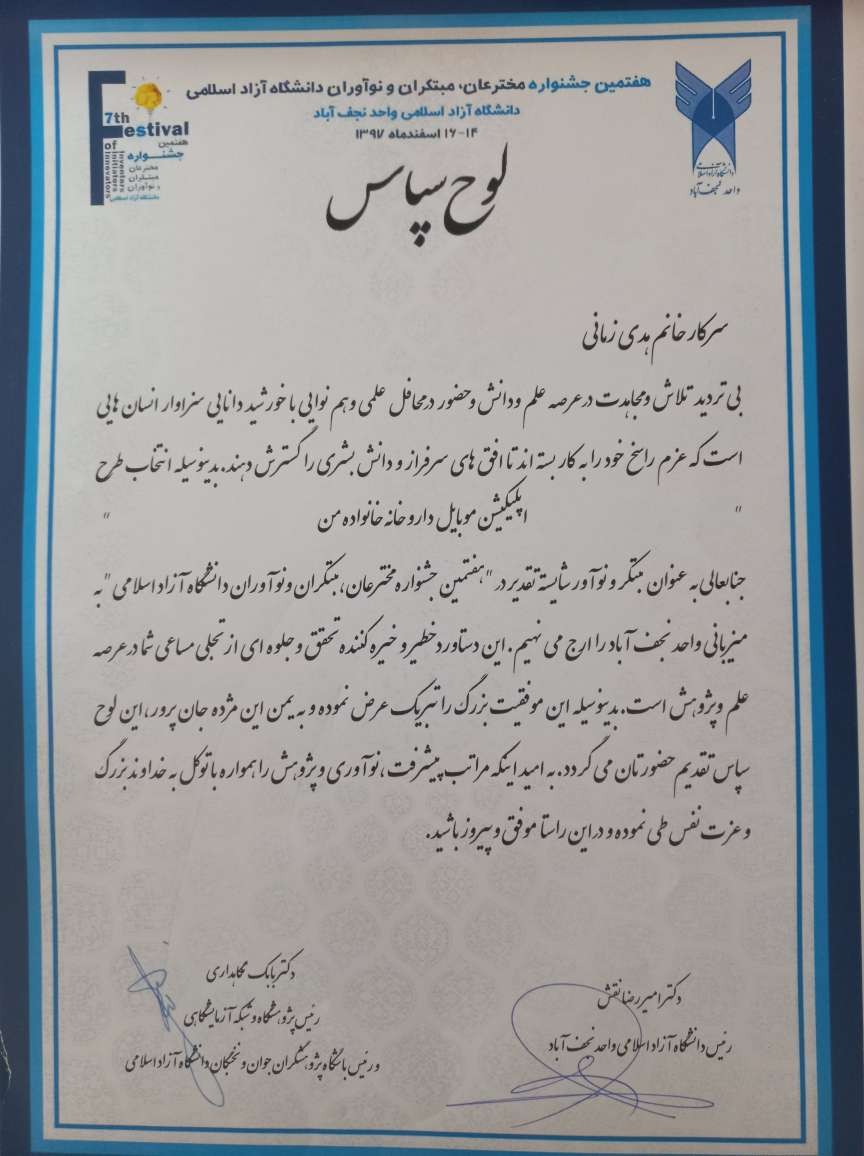 هفتمین جشنواره مخترعان، مبتکران و نوآوران دانشگاه آزاد اسلامی
دانشگاه آزاد اسلامی واحد نجف آباد
۱۴-۱۶ اسفندماه ۱۳۹۷
7th
Festival
of
Inventors
Initiators
Innovators
هفتمین
جشنواره
مخترعان
مبتکران
و نوآوران
دانشگاه آزاد اسلامی
دانشگاه آزاد اسلامی
واحد نجف آباد
لوح سپاس
سرکار خانم هدی زمانی
بی تردید تلاش ومجاهدت درعرصه علم ودانش وحضور درمحافل علمی وهم نوایی باخورشید دانایی سزاوار انسان هایی
است که عزم راسخ خود را به کار بسته اند تا افق های سرفراز و دانش بشری را گسترش دهند. بدینوسیله انتخاب طرح
" اپلیکیشن موبایل داروخانه خانواده من "
جنابعالی به عنوان مبتکر و نوآور شایسته تقدیر در "هفتمین جشنواره مخترعان، مبتکران ونوآوران دانشگاه آزاد اسلامی" به
میزبانی واحد نجف آباد را ارج می نهیم. این دستاورد خطیر و خیره کننده تحقق و جلوه ای از تجلی مساعی شما درعرصه
علم وپژوهش است. بدینوسیله این موفقیت بزرگ را تبریک عرض نموده و به یمن این مژده جان پرور، این لوح
سپاس تقدیم حضورتان می گردد. به امید اینکه مراتب پیشرفت، نوآوری وپژوهش را همواره با توکل به خداوند بزرگ
وعزت نفس طی نموده و دراین راستا موفق وپیروز باشید.
دکتر امیررضا نقش
رئیس دانشگاه آزاد اسلامی واحد نجف آباد
دکتر بابک نگاهداری
رئیس پژوهشگاه و شبکه آزمایشگاهی
و رئیس باشگاه پژوهشگران جوان و نخبگان دانشگاه آزاد اسلامی